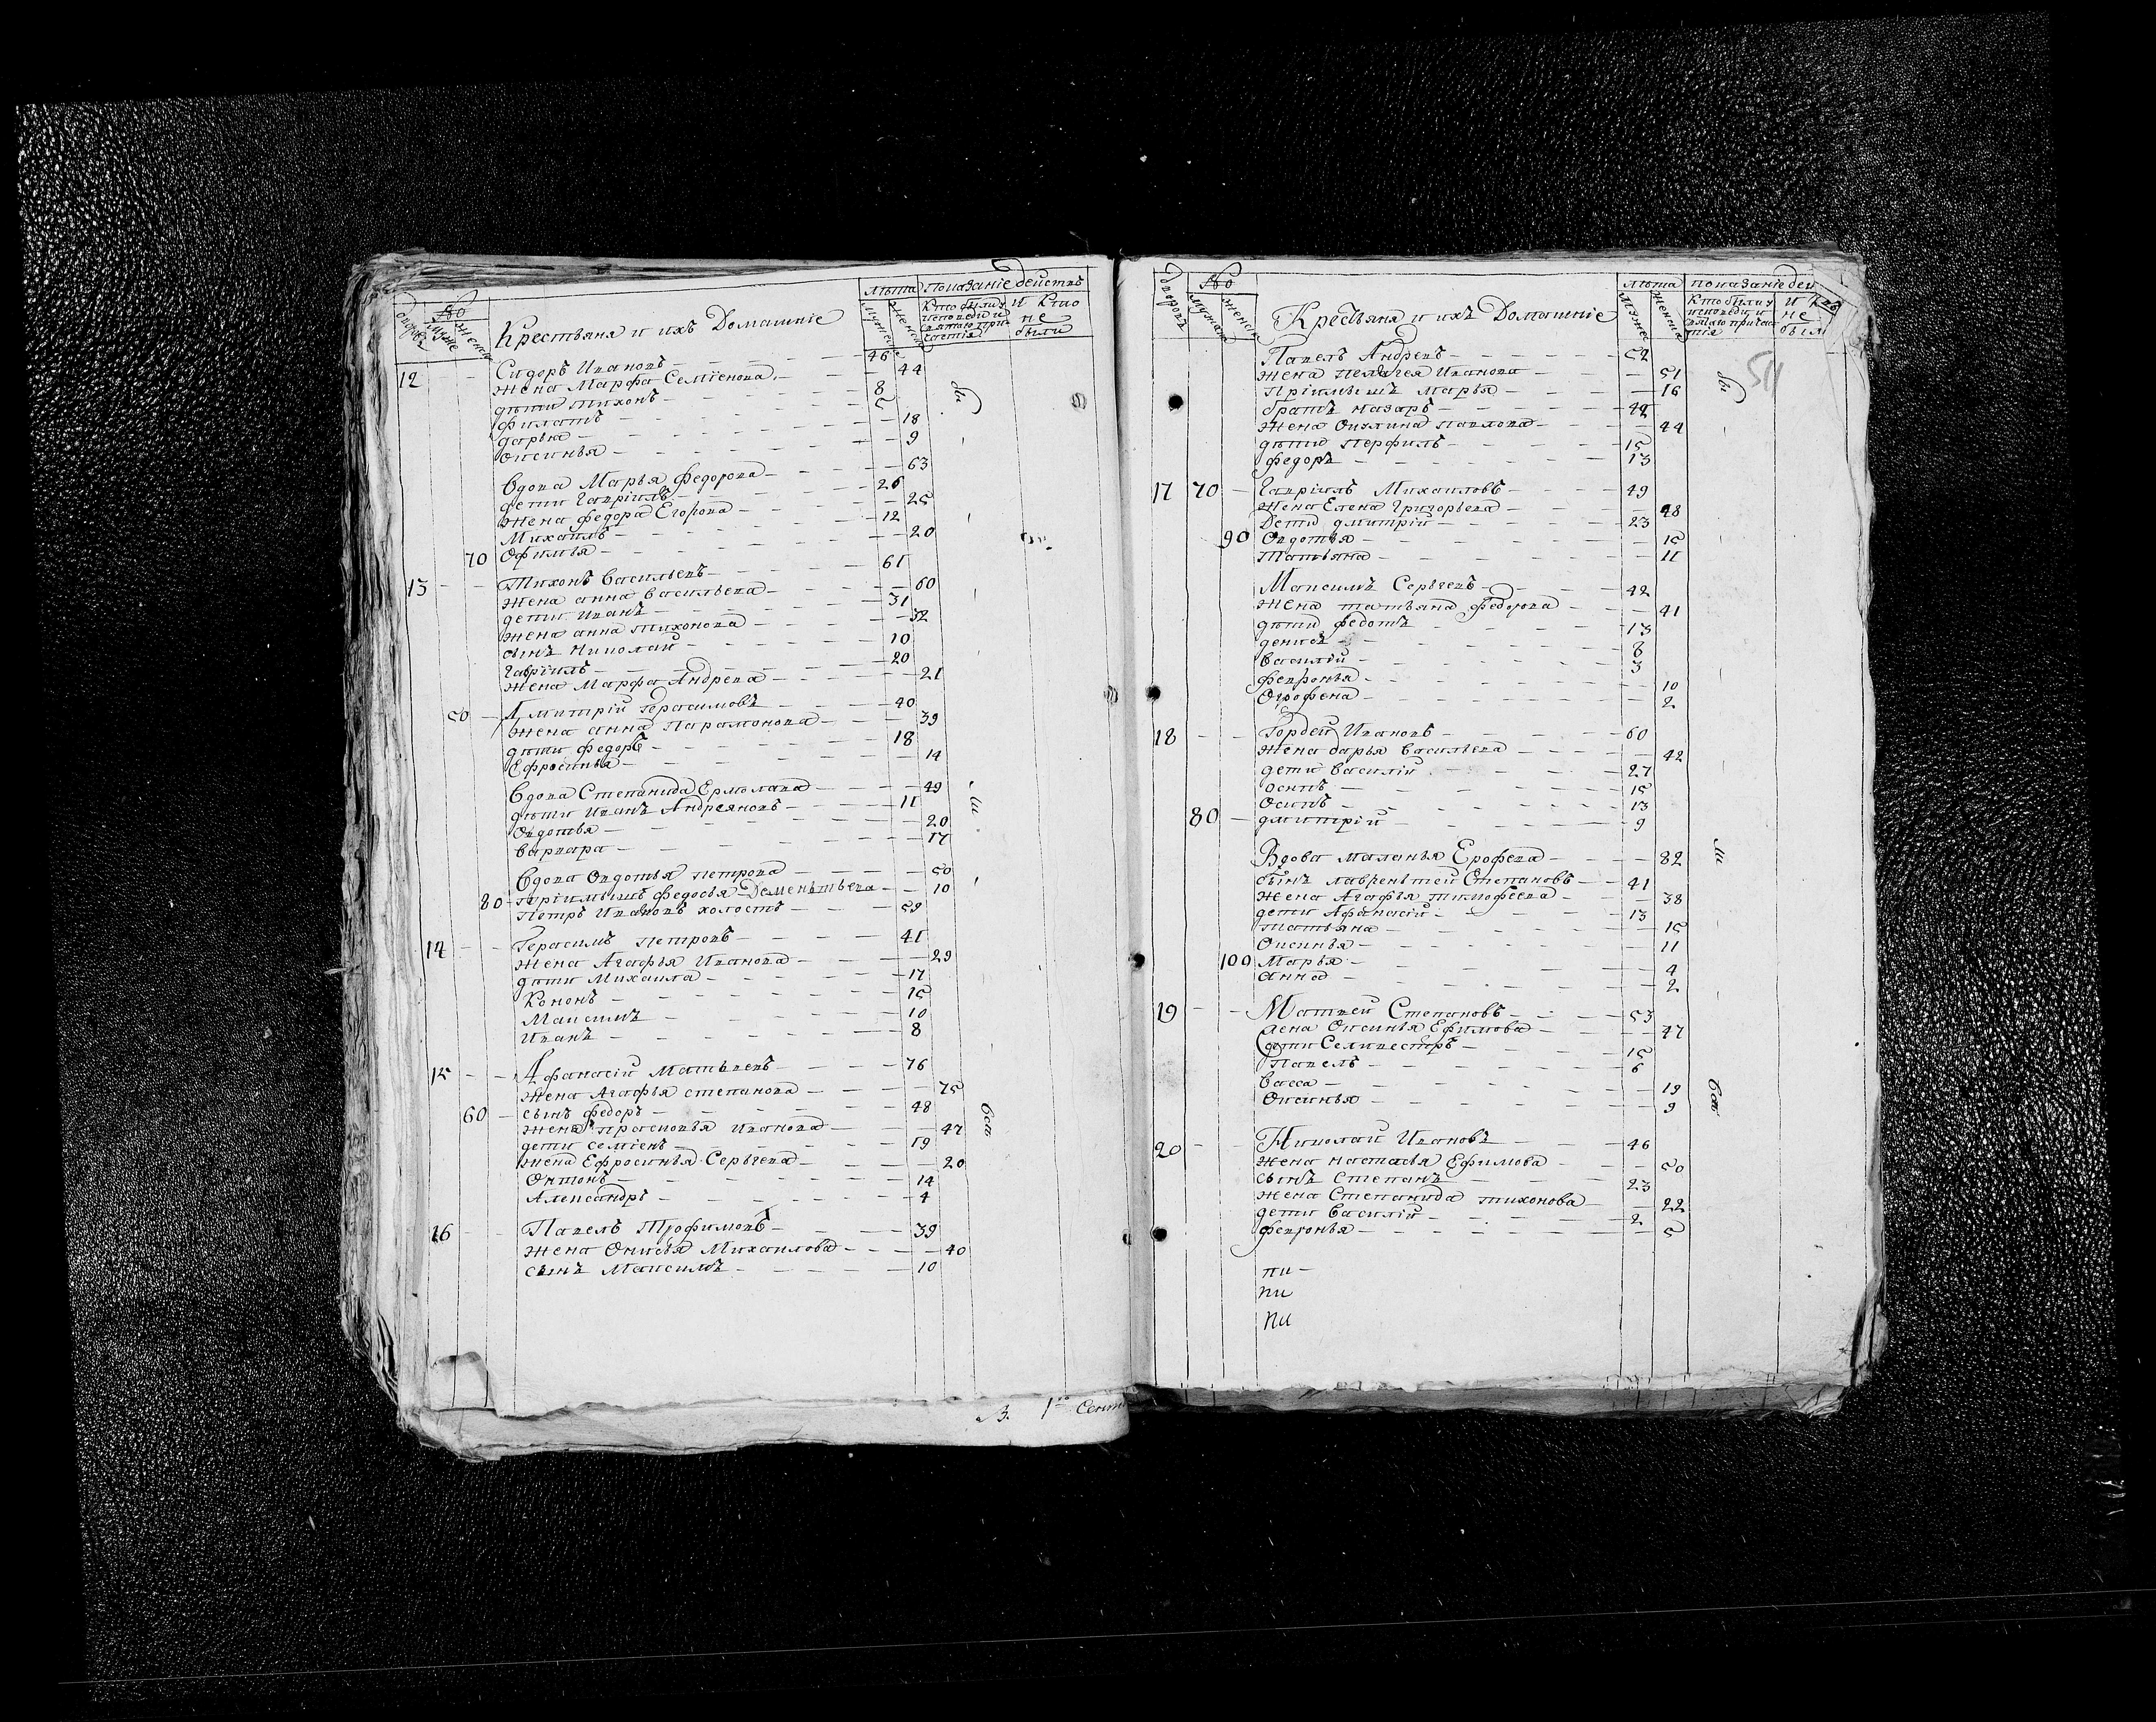 № лѣта показаніе действ
дворовъ муже женска Крестьяня и ихъ Домашніе мужеска женска Кто были у исповеди и святаго причастія И Кто не были
12 Сидоръ Ивановъ 46
жена Марфа Семіенова 44
дѣти Тихонъ 8
филатъ 5
дарья 18
Оксинья 9
Вдова Марья Федорова 63
дети Гавріилъ 26
жена федора Егорова 25
Михаилъ 12
70 Офимья 20
13 Тихонъ Васильевъ 61
жена анна Васильева 60
дети Иванъ 31
жена анна Тихонова 32
сынъ николай 10
Гавріилъ 20
жена Марфа Андрева 21
50 Дмитрій Герасимовъ 40
жена анна Парамонова 39
дѣти федоръ 18
Ефросинья 14
Вдова Степанида Ермолава 49
дѣти Иванъ Андреяновъ 11
Овдотья 20
варвара 17
Вдова Овдотья петрова 50
80 пріимышъ федосья Доменьтьева 10
Петръ Ивановъ холостъ 59
14 Герасимъ петровъ 41
жена Агафья Иванова 29
дѣти Михаила 17
Кононъ 15
Максимъ 10
Иванъ 8
15 Афанасій Матвеевъ 76
жена Агафья степанова 75
60 сынъ федоръ 48
жена прасковья иванова 47
дети семіенъ 19
жена Ефросинья Сергева 20
Онтонъ 14
Александръ 4
16 Павелъ Трофимовъ 39
жена Онисья Михаилова 40
сынъ Максимъ 10
бы
ли
Всѣ
1го Сент
№ лѣта показаніе дей
дворовъ мужеска женска Крестьяня и ихъ Домашніе муже женска Кто были у исповеди и святаго причастія И Кто не были
54
Павелъ Андревъ 52
жена пелагея Иванова 51
Пріимышъ Марья 16
братъ назаръ 42
жена Окулина павлова 44
дѣти Перфилъ 15
федоръ 13
17 70 Гавріилъ Михаиловъ 49
жена Елена Григорьева 48
дети дмитрій 23
90 Овдотья 15
татьяна 11
Максимъ Сергеевъ 42
жена татьяна федорова 41
дѣти федотъ 13
денисъ 8
василій 3
февронья 10
Огрофена 2
18 Гордей Ивановъ 60
жена дарья васильева 42
дети василій 27
осипъ 15
Осипъ 13
80 дмитрій 9
Вдова маланья Ерофева 82
сынъ лаврентей Степановъ 41
жена Агафья тимофеева 38
дети Афанасій 13
татьяна 15
Оксинья 11
100 Марья 4
анна 2
19 Матвей Степановъ 53
жена Оксинья Ефимова 47
дѣти Селивестръ 15
Павелъ 6
васса 19
Оксинья 9
20 Николай Ивановъ 46
жена настасья Ефимова 50
сынъ Степанъ 23
жена Степанида тихонова 22
дети василій 2
февронья 5
бы
ли
Всѣ
пи
пи
пи